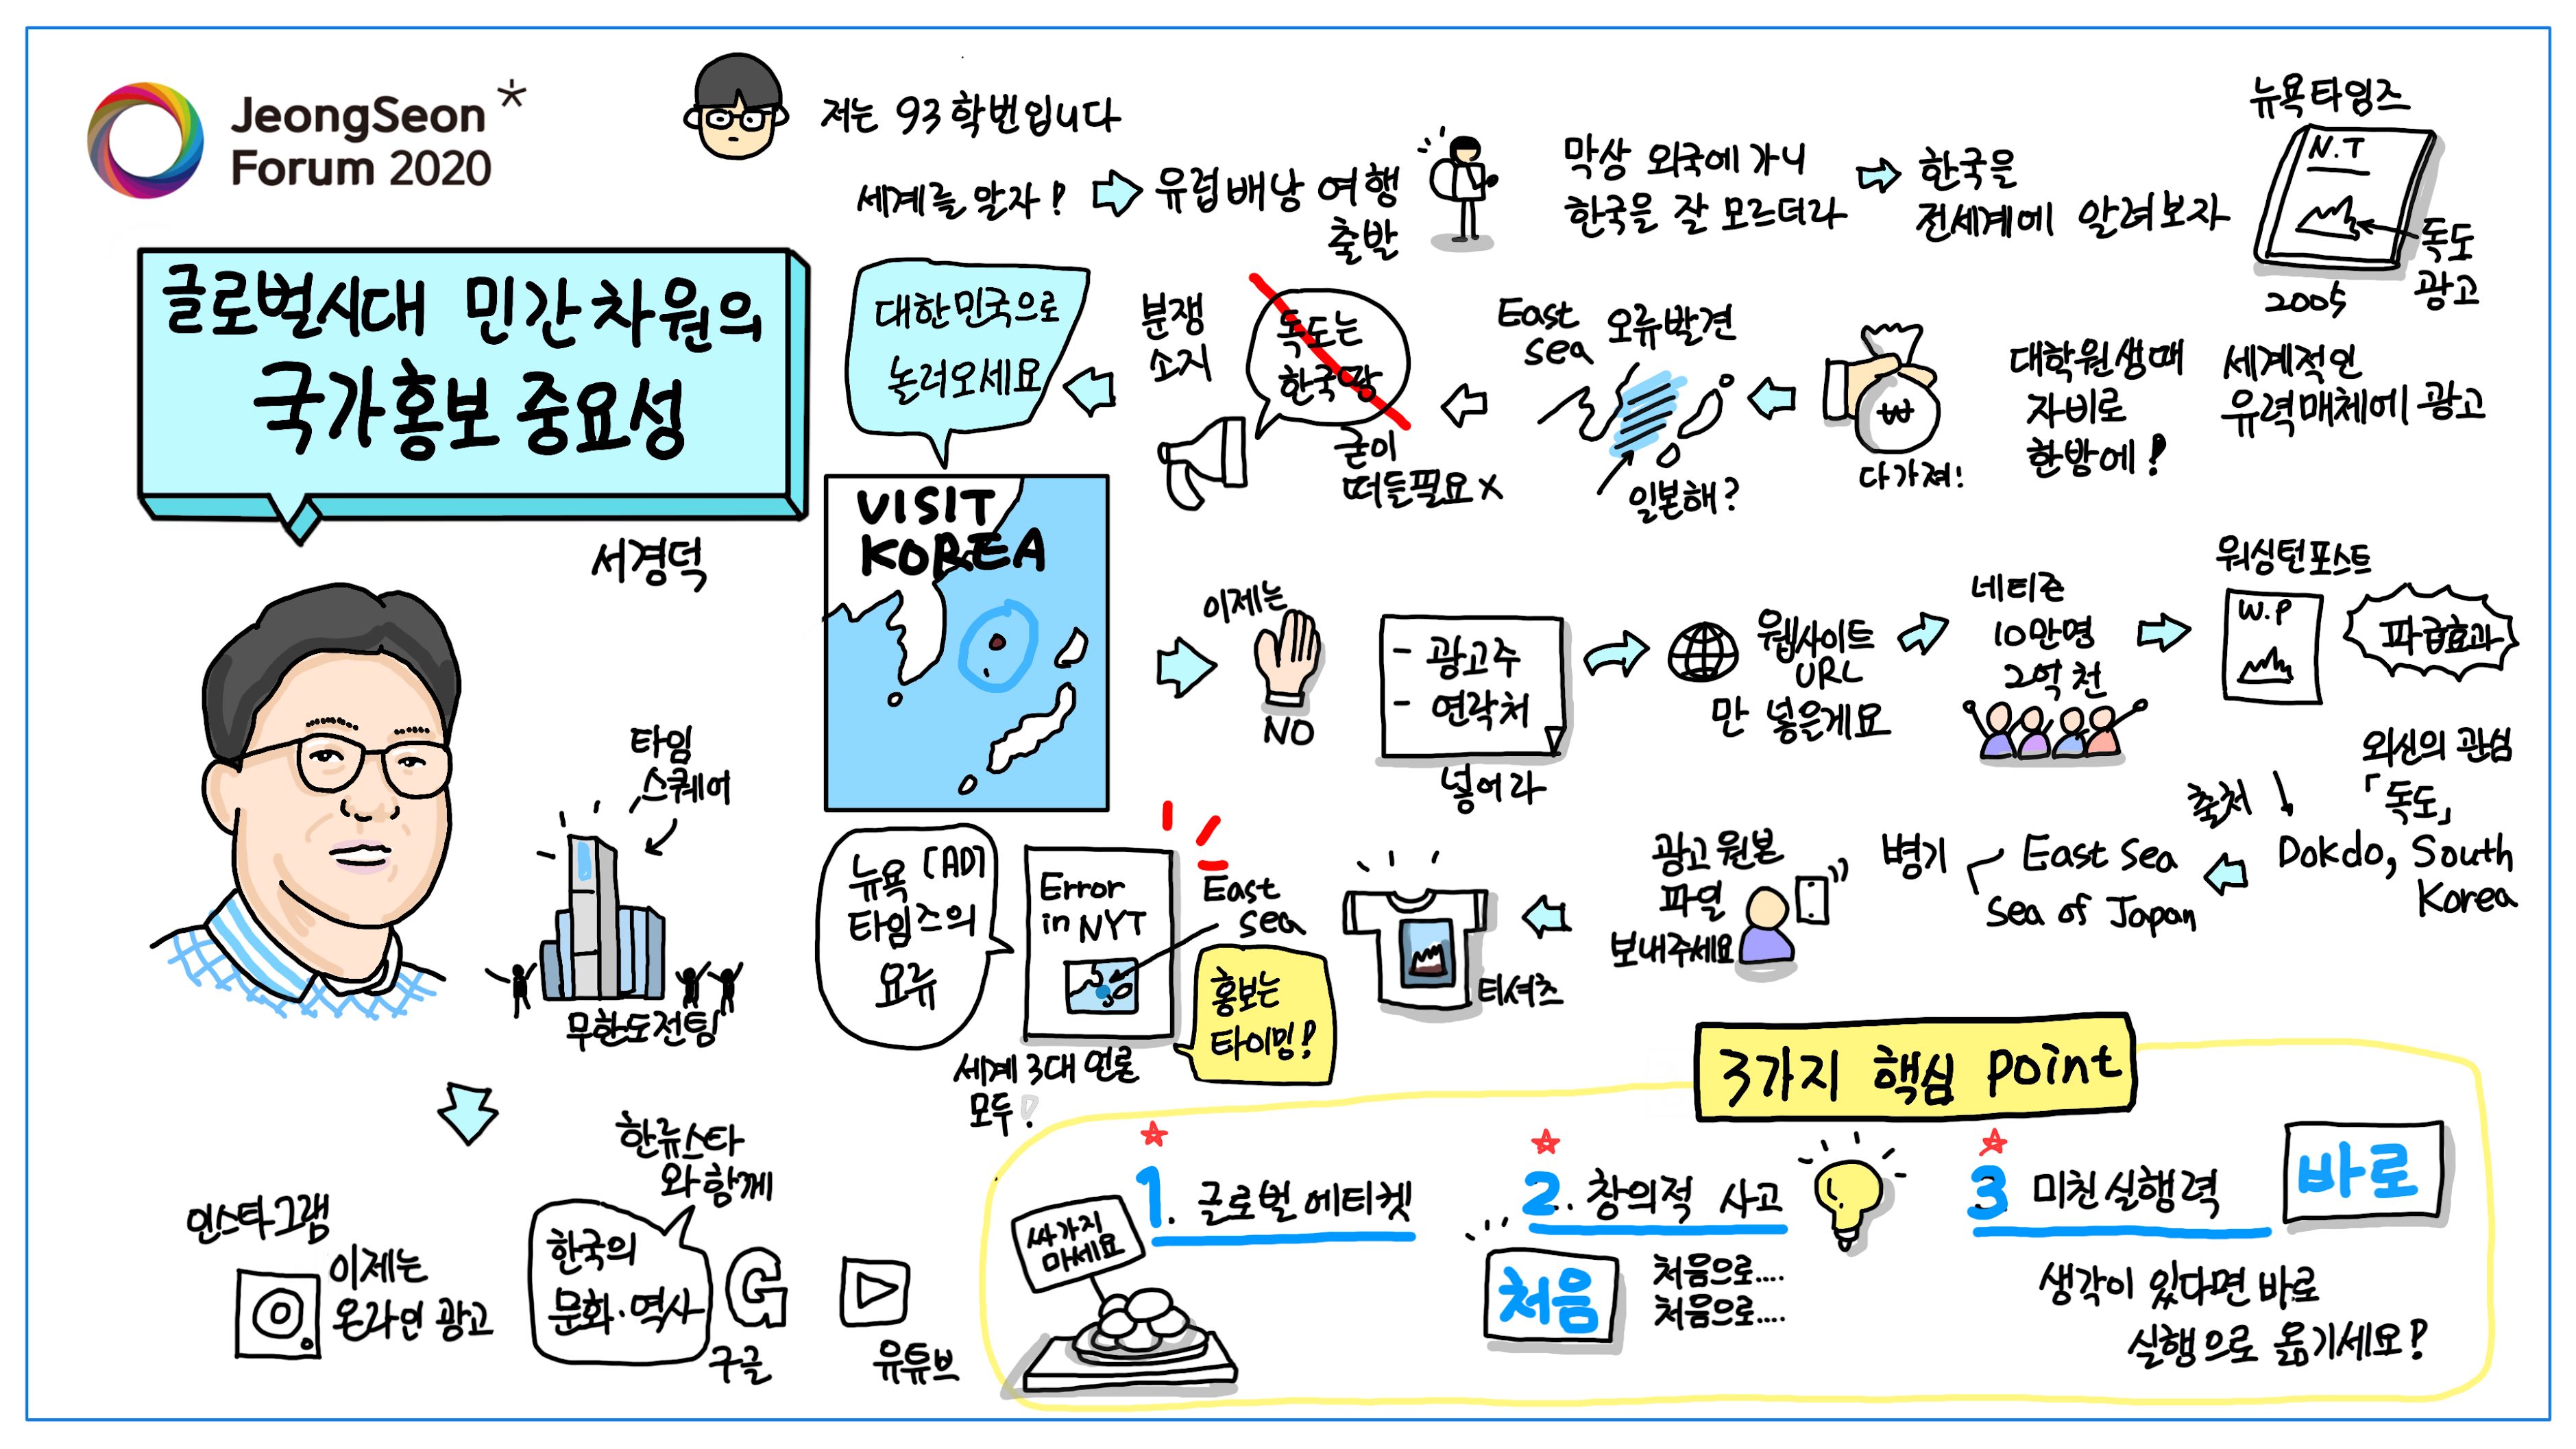 JeongSeon*
Forum 2020
저는 93학번입니다
세계를 알자!
유럽배낭 여행
출발
막상 외국에가니
한국을 잘 모르더라
한국을
전세계에 알려보자
뉴욕타임즈
N.T
독도
광고
2005
글로벌시대 민간차원의
국가홍보 중요성
서경덕
세계적인
유력매체에 광고
대학원생때
자비로
한방에!
₩
다가져!
East
Sea
오류발견
일본해?
독도는
한국땅
굳이
떠들필요 X
분쟁
소지
대한민국으로
놀러오세요
VISIT
KOREA
이제는
NO
- 광고주
- 연락처
넣어라
웹사이트
URL
만 넣을게요
네티즌
10만명
2억천
워싱턴포스트
W.P
파급효과
외신의 관심
「독도」
출처
Dokdo, South
Korea
병기
East Sea
Sea of Japan
광고원본
파일
보내주세요
티셔츠
뉴욕 [AD]
타임즈의
요류
Error
in NYT
East
Sea
홍보는
타이밍!
세계 3대 언론
모두!
타임
스퀘어
무한도전팀
인스타그램
이제는
온라인 광고
한류스타
와 함께
한국의
문화·역사
G
구글
유튜브
3가지 핵심 point
1. 글로벌에티켓
싸가지
마세요
2. 창의적 사고
처음
처음으로....
처음으로....
3 미친실행력
바로
생각이 있다면 바로
실행으로 옮기세요!